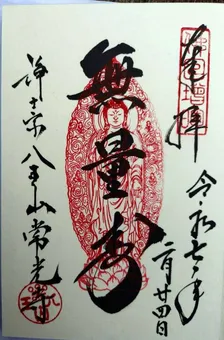 奉拝
令和七年
二月廿四日
無量寿
浄土宗 八王山 常光寺